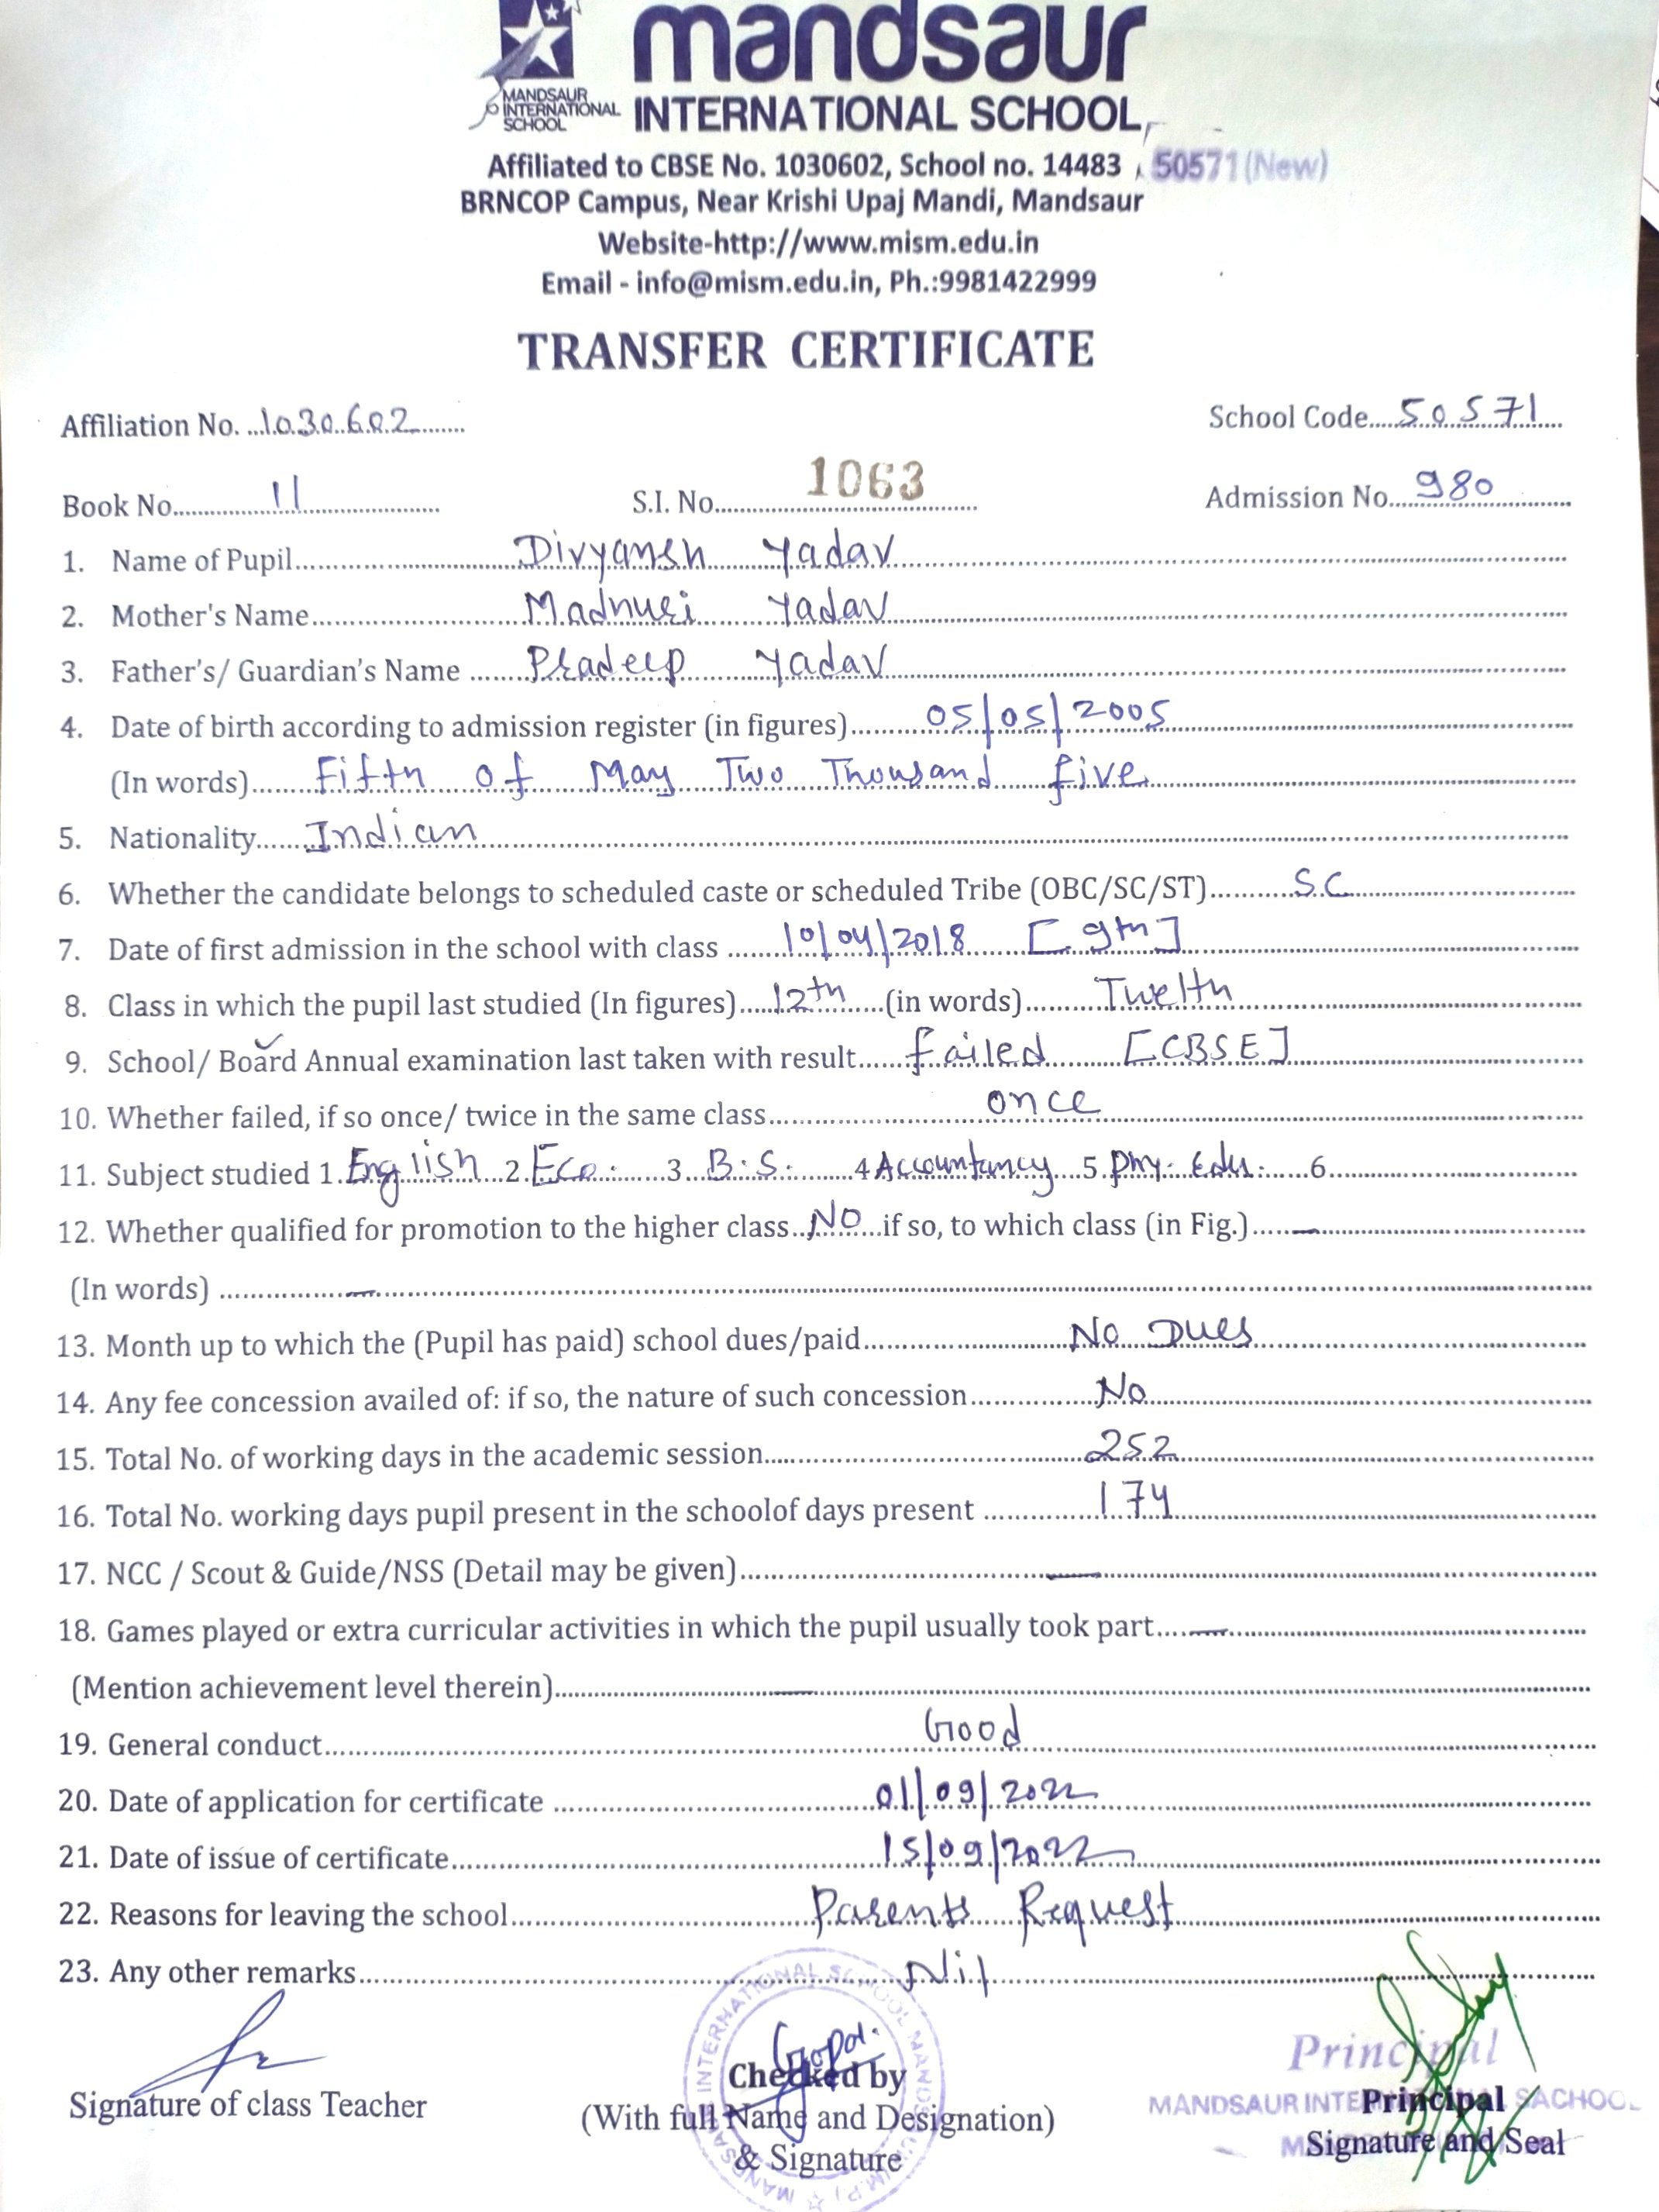 mandsaur
MANDSAUR
INTERNATIONAL
SCHOOL
INTERNATIONAL SCHOOL
Affiliated to CBSE No. 1030602, School no. 14483, 50571(New)
BRNCOP Campus, Near Krishi Upaj Mandi, Mandsaur
Website-http://www.mism.edu.in
Email - info@mism.edu.in, Ph.:9981422999
TRANSFER CERTIFICATE
Affiliation No. 1030602 School Code 50571
Book No. 11 S.I. No. 1063 Admission No. 980
1. Name of Pupil Divyansh Yadav
2. Mother's Name Madhuri Yadav
3. Father's/ Guardian's Name Pradeep Yadav
4. Date of birth according to admission register (in figures) 05/05/2005
(In words) Fifth of May Two Thousand five
5. Nationality Indian
6. Whether the candidate belongs to scheduled caste or scheduled Tribe (OBC/SC/ST) S.C
7. Date of first admission in the school with class 10/04/2018 [9th]
8. Class in which the pupil last studied (In figures) 12th (in words) Twelth
9. School/ Board Annual examination last taken with result failed [CBSE]
10. Whether failed, if so once/ twice in the same class once
11. Subject studied 1. English 2. Eco. 3. B.S. 4 Accountancy 5. Phy. Edu. 6.
12. Whether qualified for promotion to the higher class NO if so, to which class (in Fig.) —
(In words) —
13. Month up to which the (Pupil has paid) school dues/paid No Dues
14. Any fee concession availed of: if so, the nature of such concession No
15. Total No. of working days in the academic session 252
16. Total No. working days pupil present in the schoolof days present 174
17. NCC / Scout & Guide/NSS (Detail may be given) —
18. Games played or extra curricular activities in which the pupil usually took part —
(Mention achievement level therein) —
19. General conduct Good
20. Date of application for certificate 01/09/2022
21. Date of issue of certificate 15/09/2022
22. Reasons for leaving the school Parents Request
23. Any other remarks Nil
Signature of class Teacher
Gopal
Checked by
(With full Name and Designation)
& Signature
MANDSAUR INTERNATIONAL SCHOOL MANDSAUR (M.P.)
Principal
MANDSAUR INTERNATIONAL SACHOOL
Principal
Signature and Seal